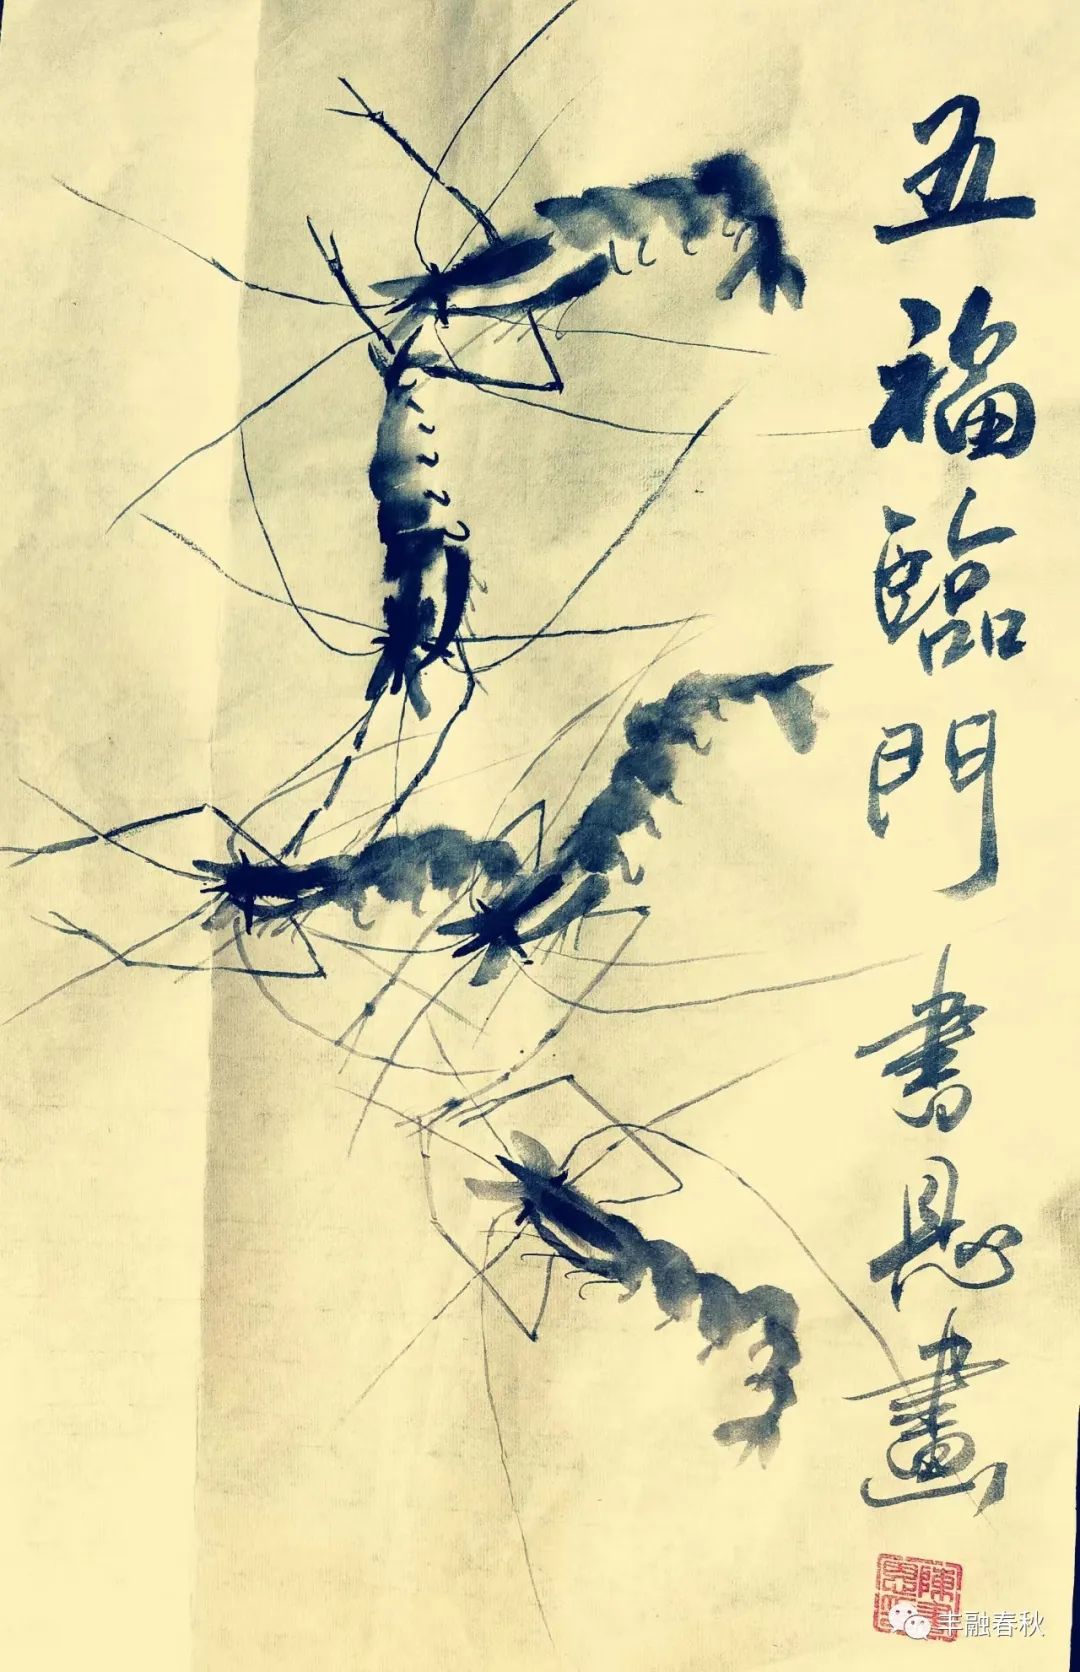 五福臨門 書畫
丰融春秋